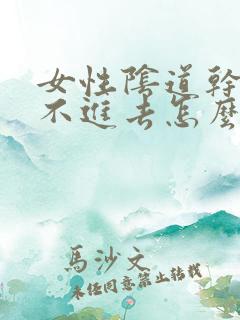 女性陰道幹
不進去怎麼
馬沙文
未经同意禁止转载